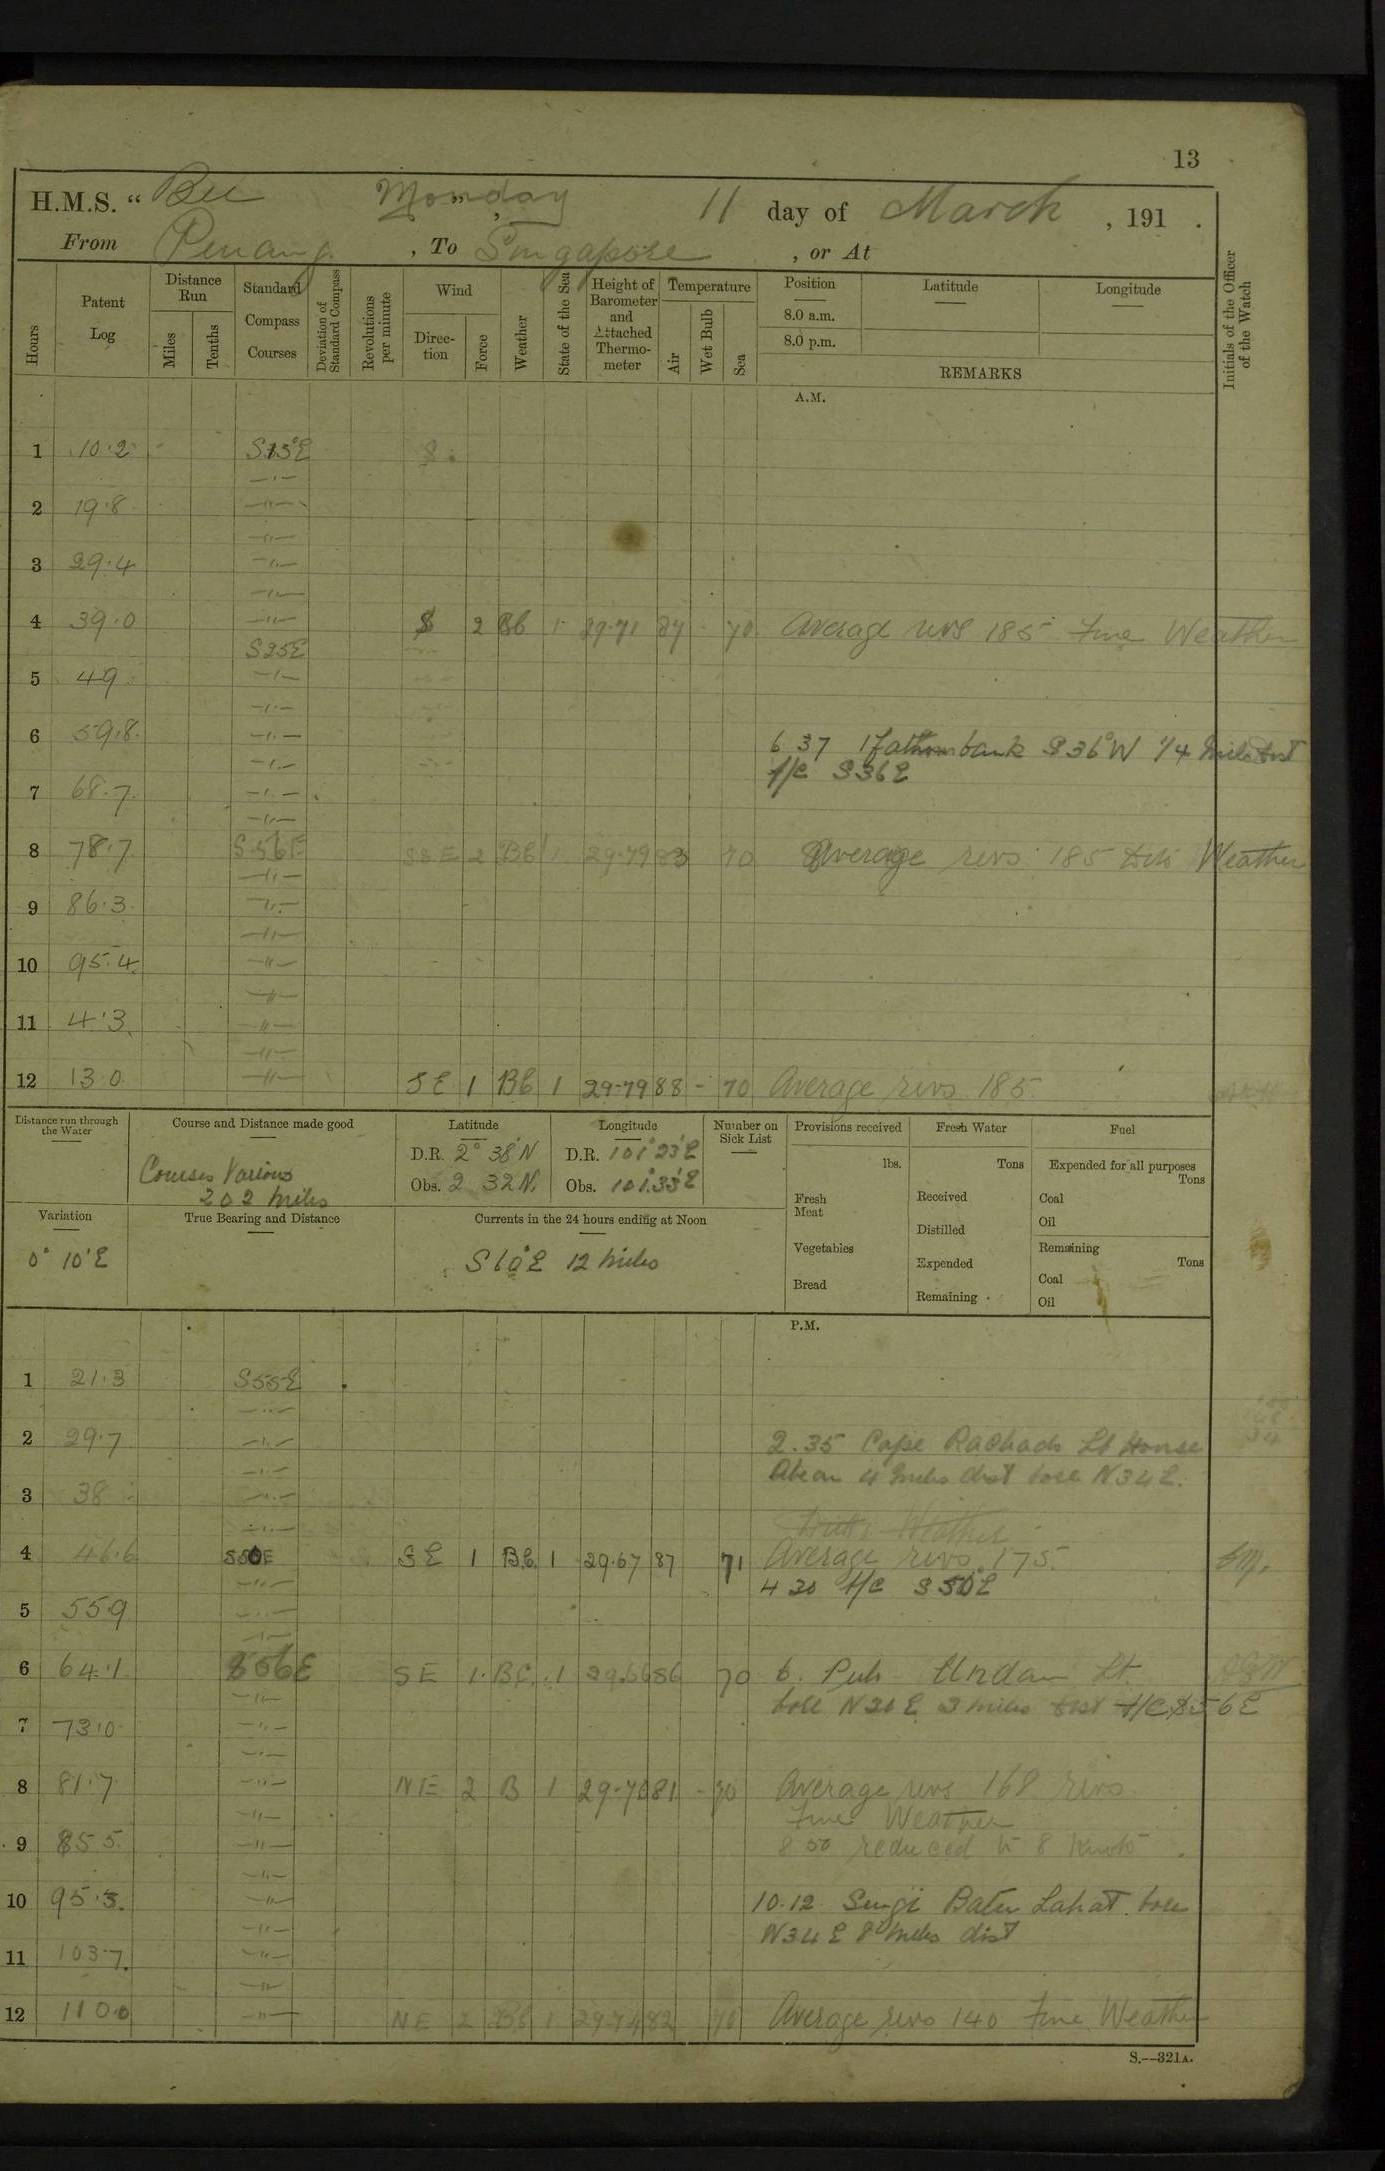 13
H.M.S. “ Bee Monday 11 day of March , 191 .
From Penang , To Singapore , or At
Hours
Patent Log
Distance Run
Miles
Tenths
Standard Compass Courses
Deviation of Standard Compass
Revolutions per minute
Wind
Direction
Force
Weather
State of the Sea
Height of Barometer and Attached Thermometer
Temperature
Air
Wet Bulb
Sea
Position
8.0 a.m.
8.0 p.m.
Latitude
Longitude
REMARKS
Initials of the Officer of the Watch
A.M.
1 10.2 S15°E
2 19.8 —"—
3 29.4 —"—
4 39.0 —"— S 2 Bb 1 29.71 84 - 70 Average revs 185 Fine Weather
S25E
5 49 —"—
6 59.8 —"— 6.37 1 fathom bank S36°W 1/4 mile dist
A/C S36E
7 68.7 —"—
8 78.7 S.56E SSE 2 Bb 1 29.79 83 70 Average revs 185 Weather
9 86.3 —"—
10 95.4 —"—
11 4.3 —"—
12 13.0 —"— SE 1 Bb 1 29.79 88 - 70 Average revs 185
Distance run through the Water
Course and Distance made good
Courses Various
202 miles
Latitude
D.R. 2° 38'N
Obs. 2 32N.
Longitude
D.R. 101° 23'E
Obs. 101.33'E
Number on Sick List
Provisions received
lbs.
Fresh Meat
Vegetables
Bread
Fresh Water
Tons
Received
Distilled
Expended
Remaining
Fuel
Expended for all purposes
Tons
Coal
Oil
Remaining
Tons
Coal
Oil
Variation
0° 10'E
True Bearing and Distance
Currents in the 24 hours ending at Noon
S60°E 12 miles
P.M.
1 21.3 S55E
2 29.7 —"— 2.35 Cape Rachado Lt House
Abeam 4 miles dist bore N34E.
3 38 —"—
Weather
4 46.6 S50E SE 1 Bb 1 29.67 87 71 Average revs 175.
4 30 A/C S50°E
5 55.9 —"—
6 64.1 S56E SE 1 BC 1 29.66 86 70 6. Pulo Undan Lt.
bore N30E 3 miles dist A/C S56E
7 73.0 —"—
8 81.7 —"— NE 2 B 1 29.70 81 - 70 Average revs 168 revs
Fine Weather
9 85.5 —"— 8 50 reduced to 8 Knots
10 95.3. —"— 10.12 Batu Lahat bore
N34E 8 miles dist
11 103.7. —"—
12 110.0 —"— NE 2 Bb 1 29.74 82 70 Average revs 140 Fine Weather
S.—321A.